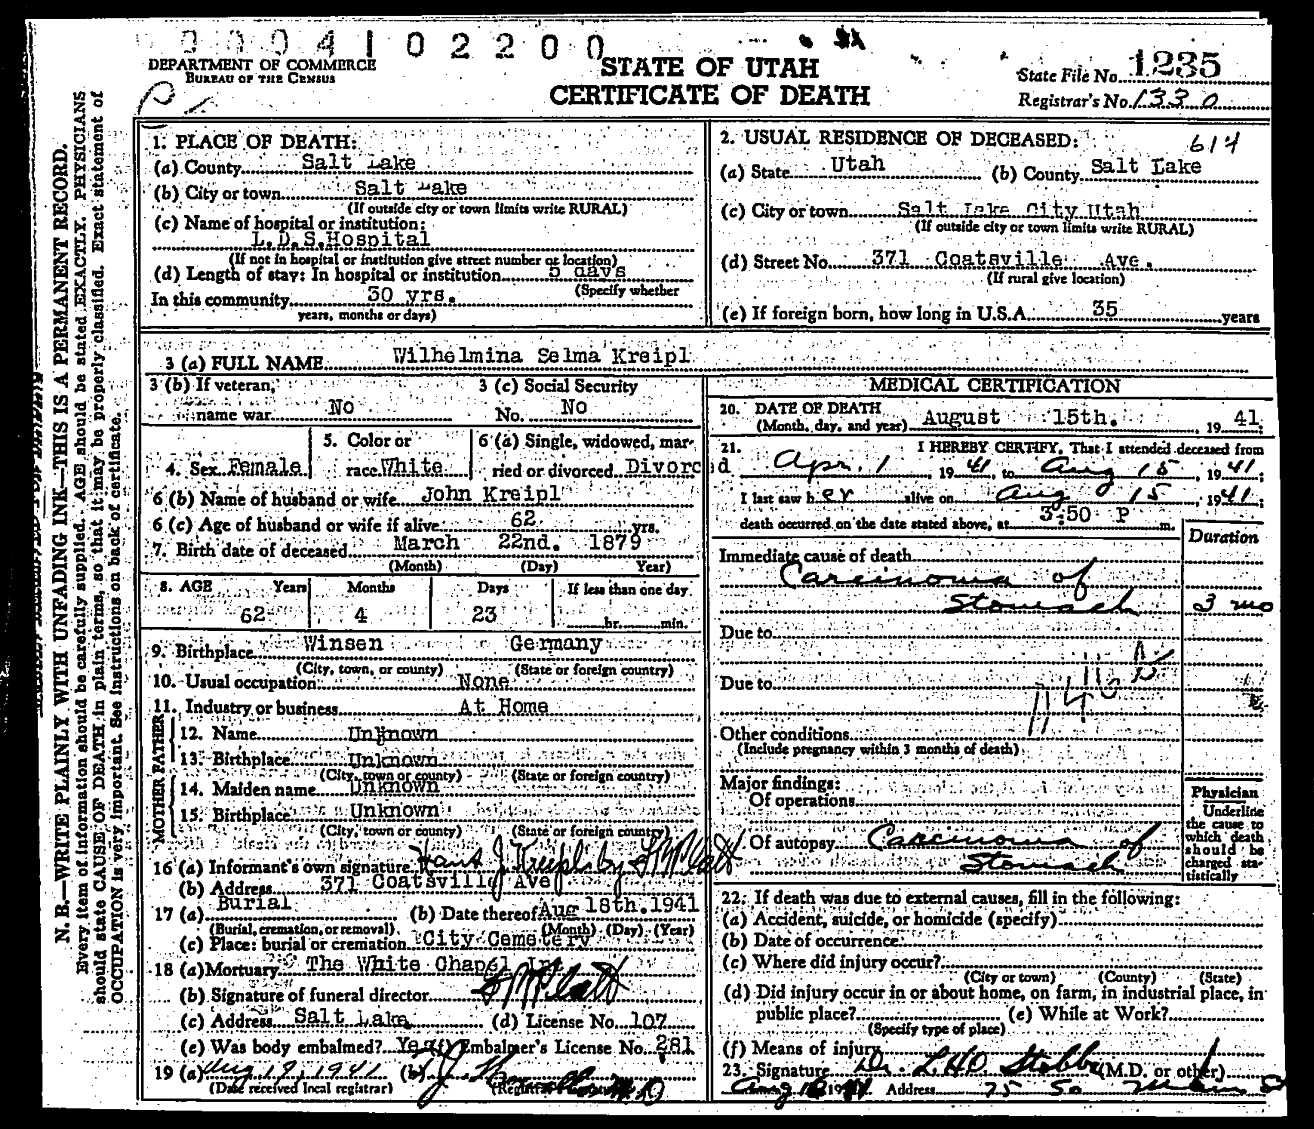 0004102200
DEPARTMENT OF COMMERCE
BUREAU OF THE CENSUS
STATE OF UTAH
CERTIFICATE OF DEATH
State File No. 1235
Registrar's No. 1330
N. B.—WRITE PLAINLY WITH UNFADING INK—THIS IS A PERMANENT RECORD.
Every item of information should be carefully supplied. AGE should be stated EXACTLY. PHYSICIANS
should state CAUSE OF DEATH in plain terms, so that it may be properly classified. Exact statement of
OCCUPATION is very important. See instructions on back of certificate.
1. PLACE OF DEATH:
(a) County Salt Lake
(b) City or town Salt Lake
(If outside city or town limits write RURAL)
(c) Name of hospital or institution:
L.D.S.Hospital
(If not in hospital or institution give street number or location)
(d) Length of stay: In hospital or institution 5 days
(Specify whether
In this community 30 yrs.
years, months or days)
2. USUAL RESIDENCE OF DECEASED: 614
(a) State Utah (b) County Salt Lake
(c) City or town Salt Lake City Utah
(If outside city or town limits write RURAL)
(d) Street No. 371 Coatsville Ave.
(If rural give location)
(e) If foreign born, how long in U.S.A. 35 years
3 (a) FULL NAME Wilhelmina Selma Kreipl
3 (b) If veteran, name war No
3 (c) Social Security No. No
4. Sex Female
5. Color or race White
6 (a) Single, widowed, married or divorced Divorcd
6 (b) Name of husband or wife John Kreipl
6 (c) Age of husband or wife if alive 62 yrs.
7. Birth date of deceased March 22nd. 1879
(Month) (Day) Year)
8. AGE Years Months Days If less than one day
62 4 23 hr. min.
9. Birthplace Winsen Germany
(City, town, or county) (State or foreign country)
10. Usual occupation None
11. Industry or business At Home
FATHER
12. Name Unknown
13. Birthplace Unknown
(City, town or county) (State or foreign country)
MOTHER
14. Maiden name Unknown
15. Birthplace Unknown
(City, town or county) (State or foreign country)
16 (a) Informant's own signature Hans J. Kreipl by
(b) Address 371 Coatsville Ave
17 (a) Burial (b) Date thereof Aug 18th. 1941
(Burial, cremation, or removal) (Month) (Day) (Year)
(c) Place: burial or cremation City Cemetery
18 (a) Mortuary The White Chapel Inc
(b) Signature of funeral director
(c) Address Salt Lake (d) License No. 107
(e) Was body embalmed? Yes (f) Embalmer's License No. 281
19 (a) Aug 19, 1941 (b)
(Date received local registrar)
MEDICAL CERTIFICATION
20. DATE OF DEATH August 15th. , 19 41
(Month, day, and year)
21. I HEREBY CERTIFY, That I attended deceased from
Apr. 1 , 19 41 to Aug 15 , 19 41;
I last saw her alive on Aug 15 , 19 41;
death occurred on the date stated above, at 3:50 P m.
Duration
Immediate cause of death
Carcinoma of
Stomach 3 mo
Due to
Due to
Other conditions
(Include pregnancy within 3 months of death)
Major findings:
Of operations
Of autopsy Carcinoma of
Stomach
Physician
Underline
the cause to
which death
should be
charged sta-
tistically
22. If death was due to external causes, fill in the following:
(a) Accident, suicide, or homicide (specify)
(b) Date of occurrence
(c) Where did injury occur?
(City or town) (County) (State)
(d) Did injury occur in or about home, on farm, in industrial place, in
public place? (e) While at Work?
(Specify type of place)
(f) Means of injury
23. Signature Dr. (M.D. or other)
Address